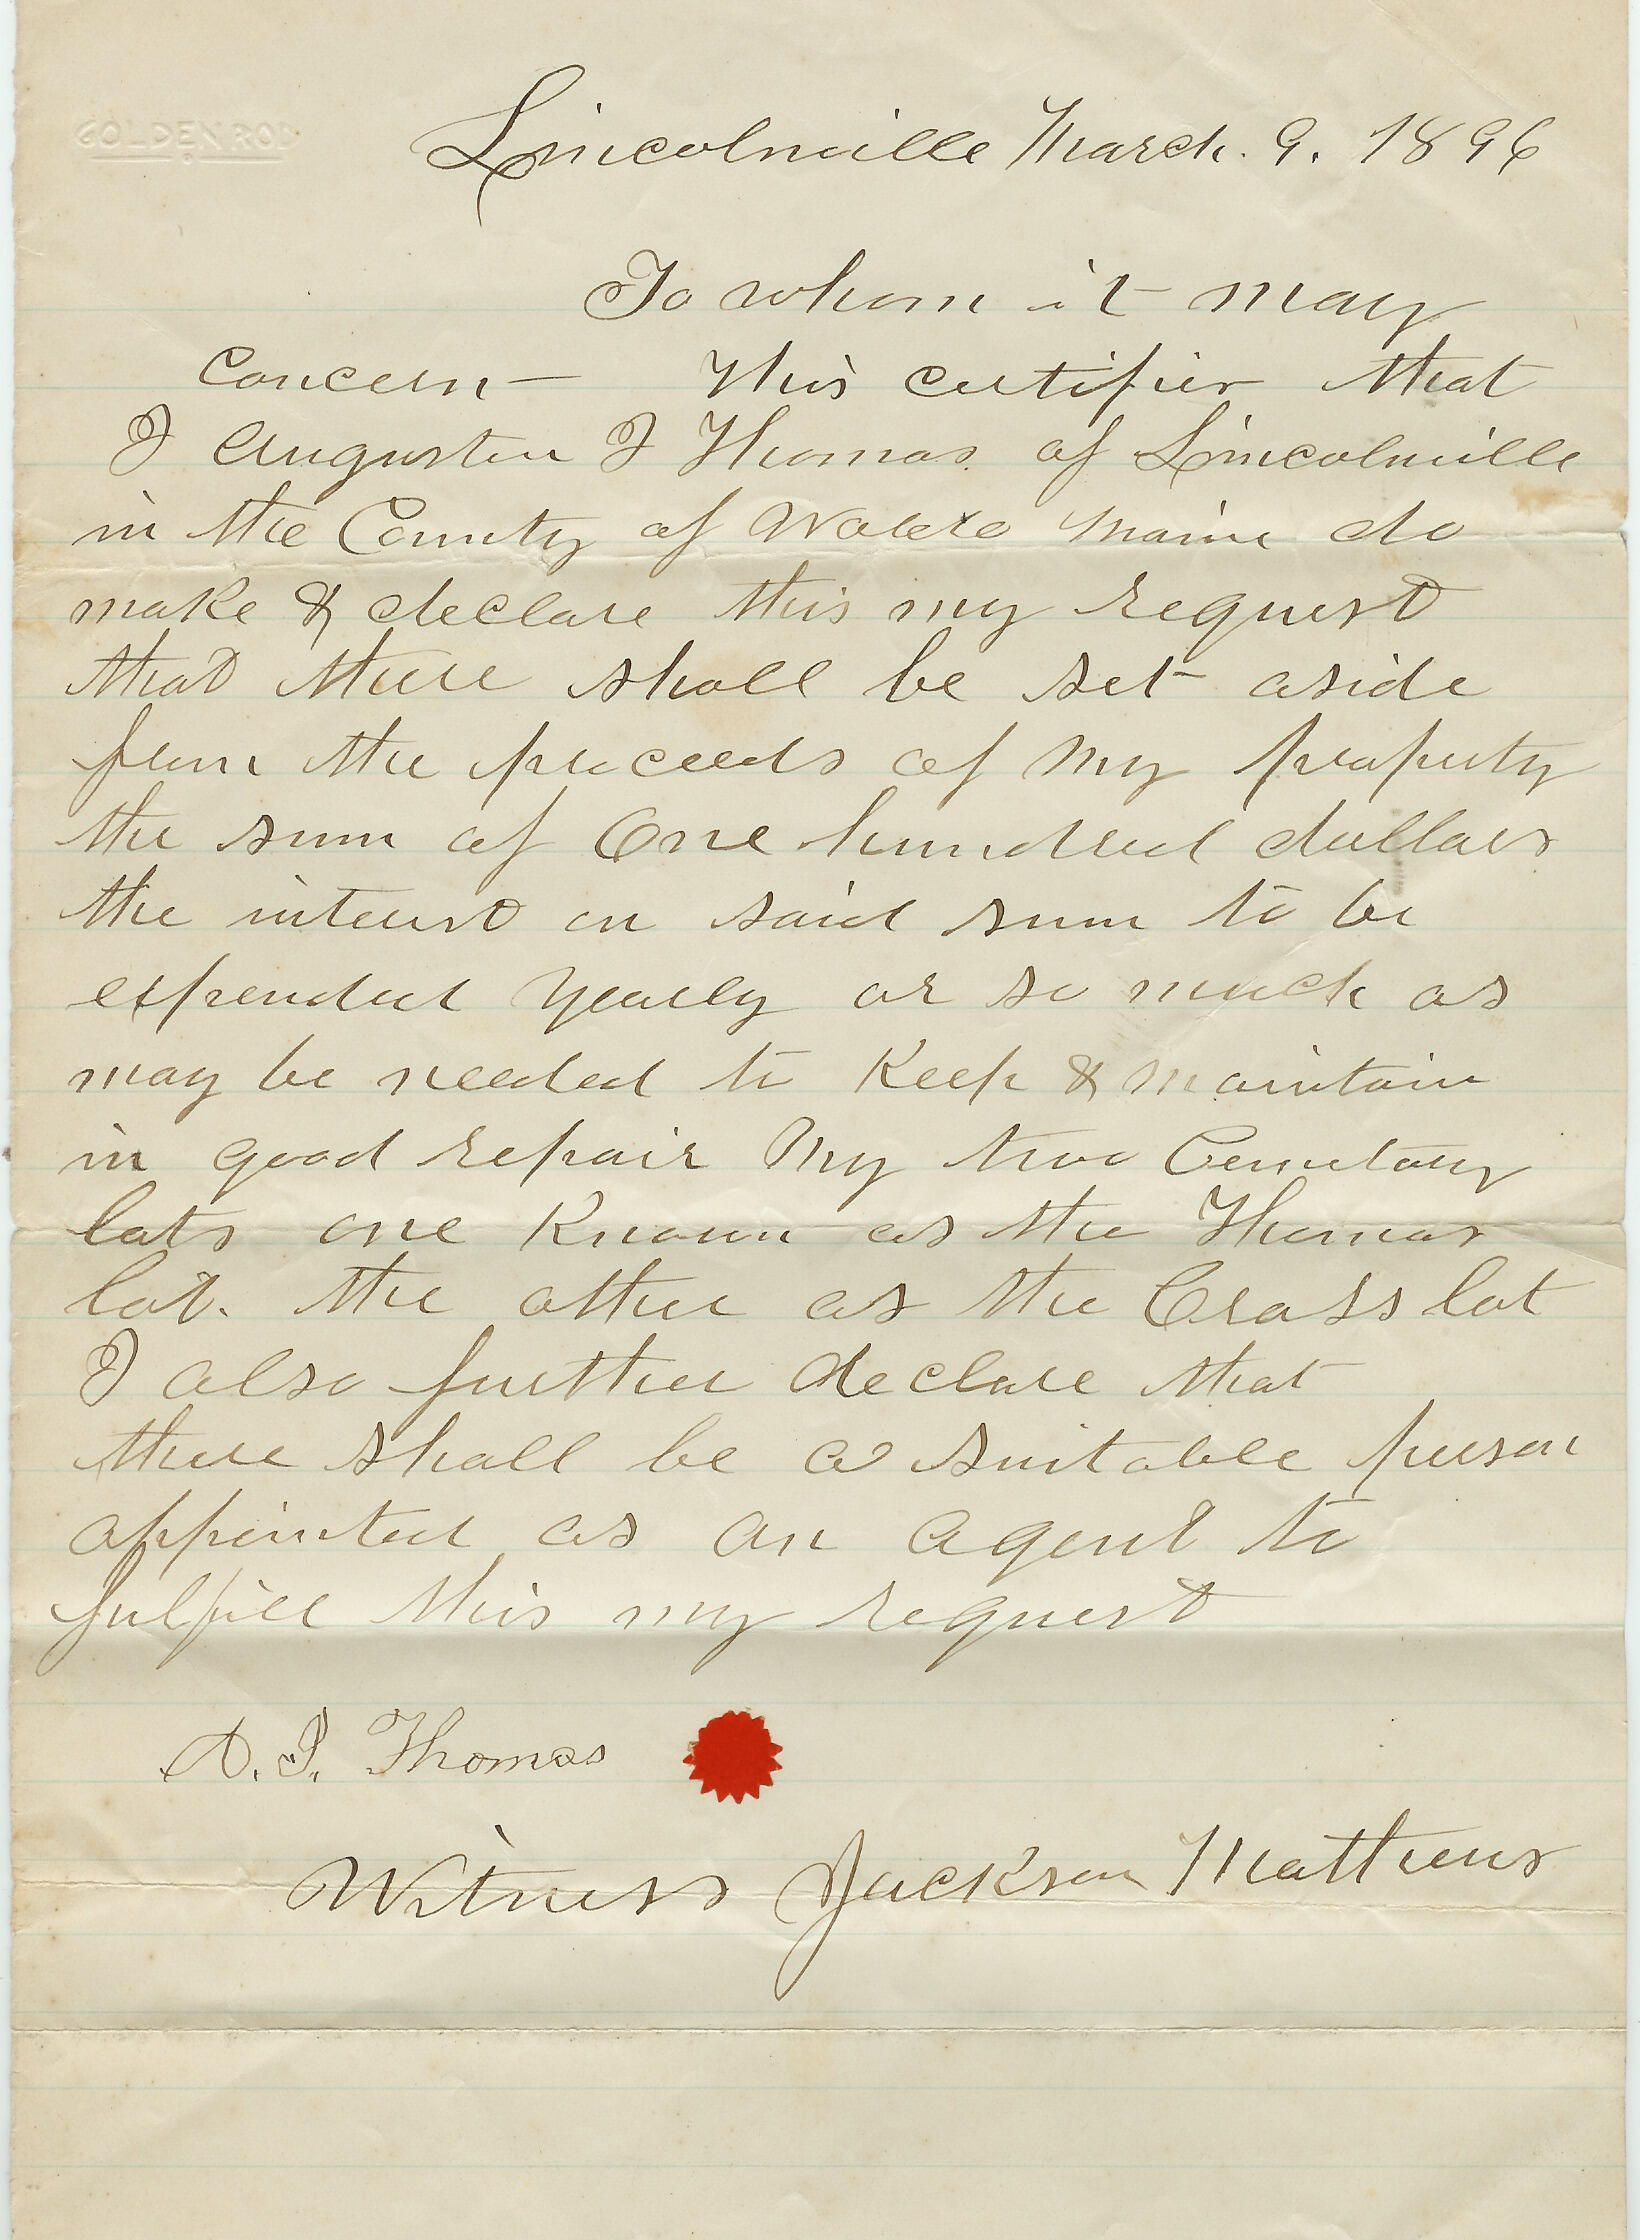 GOLDEN ROD
Lincolnville March. 9. 1896
To whom it may
Concern — This certifies that
I Augustin I Thomas of Lincolnville
in the County of Waldo Maine do
make & declare this my request
that there shall be set aside
from the proceeds of my property
the sum of One hundred dollars
the interest on said sum to be
expended yearly or so much as
may be needed to Keep & maintain
in good repair My two Cemetary
lots one Known as the Thomas
lot. the other as the Cross lot
I also further declare that
there shall be a suitable person
appointed as an agent to
fulfill this my request
A. I. Thomas
Witness Jackson Mathews